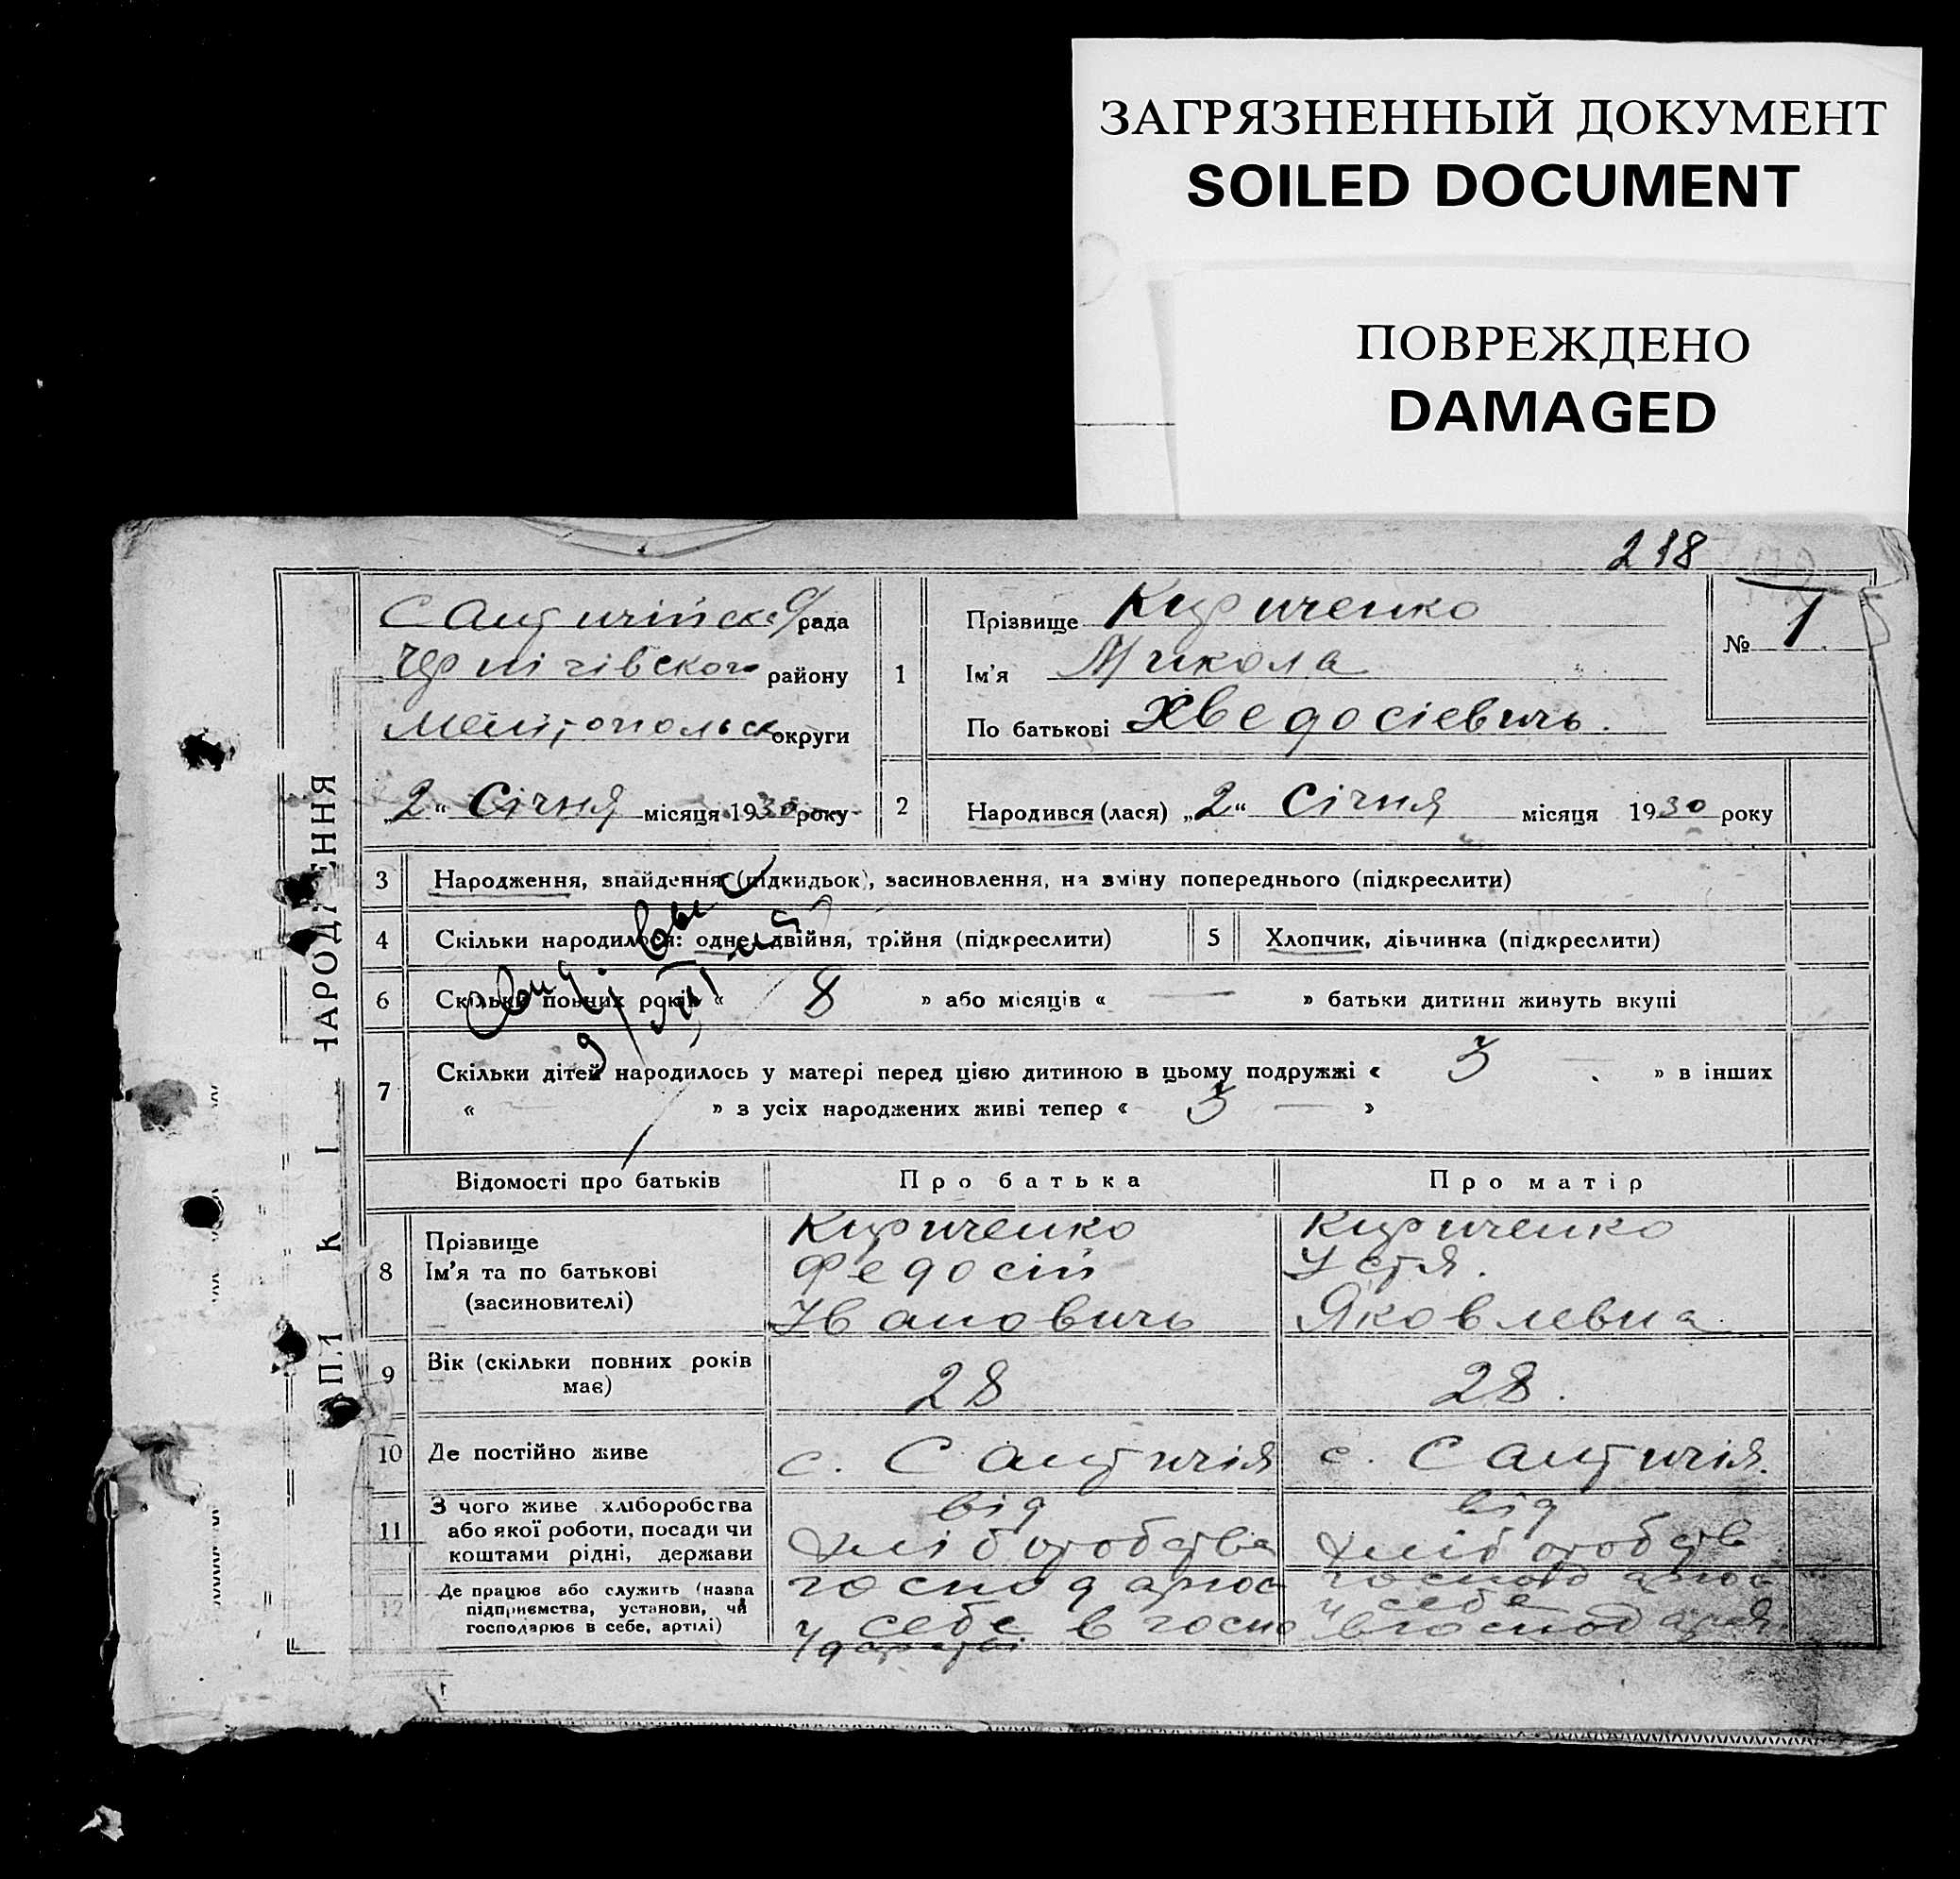 ЗАГРЯЗНЕННЫЙ ДОКУМЕНТ
SOILED DOCUMENT
ПОВРЕЖДЕНО
DAMAGED
218
рада
Чернігівского району
округи
„2“ Січня місяця 1930 року
1
Прізвище Кириченко
Ім'я Микола
По батькові Хведосіевичь.
№ 1
2
Народився (лася) „2“ Січня місяця 1930 року
3 Народження, знайдення (підкидьок), засиновлення, на зміну попереднього (підкреслити)
4 Скільки народилося: одне, двійня, трійня (підкреслити)
5 Хлопчик, дівчинка (підкреслити)
6 Скільки повних років « 8 » або місяців « — » батьки дитини живуть вкупі
7 Скільки дітей народилось у матері перед цією дитиною в цьому подружжі « 3 » в інших
« — » з усіх народжених живі тепер « 3 — »
Відомості про батьків Про батька Про матір
8 Прізвище
Ім'я та по батькові
(засиновителі)
Кириченко
Федосій
Івановичь
Кириченко
Устя.
Яковлевна
9 Вік (скільки повних років
має)
28
28.
10 Де постійно живе
с.
с.
11 З чого живе хліборобства
або якої роботи, посади чи
коштами рідні, держави
від
хліборобства
від
хліборобств
12 Де працює або служить (назва
підприємства, установи, чи
господарює в себе, артілі)
господарює
у себе в госпо
себе